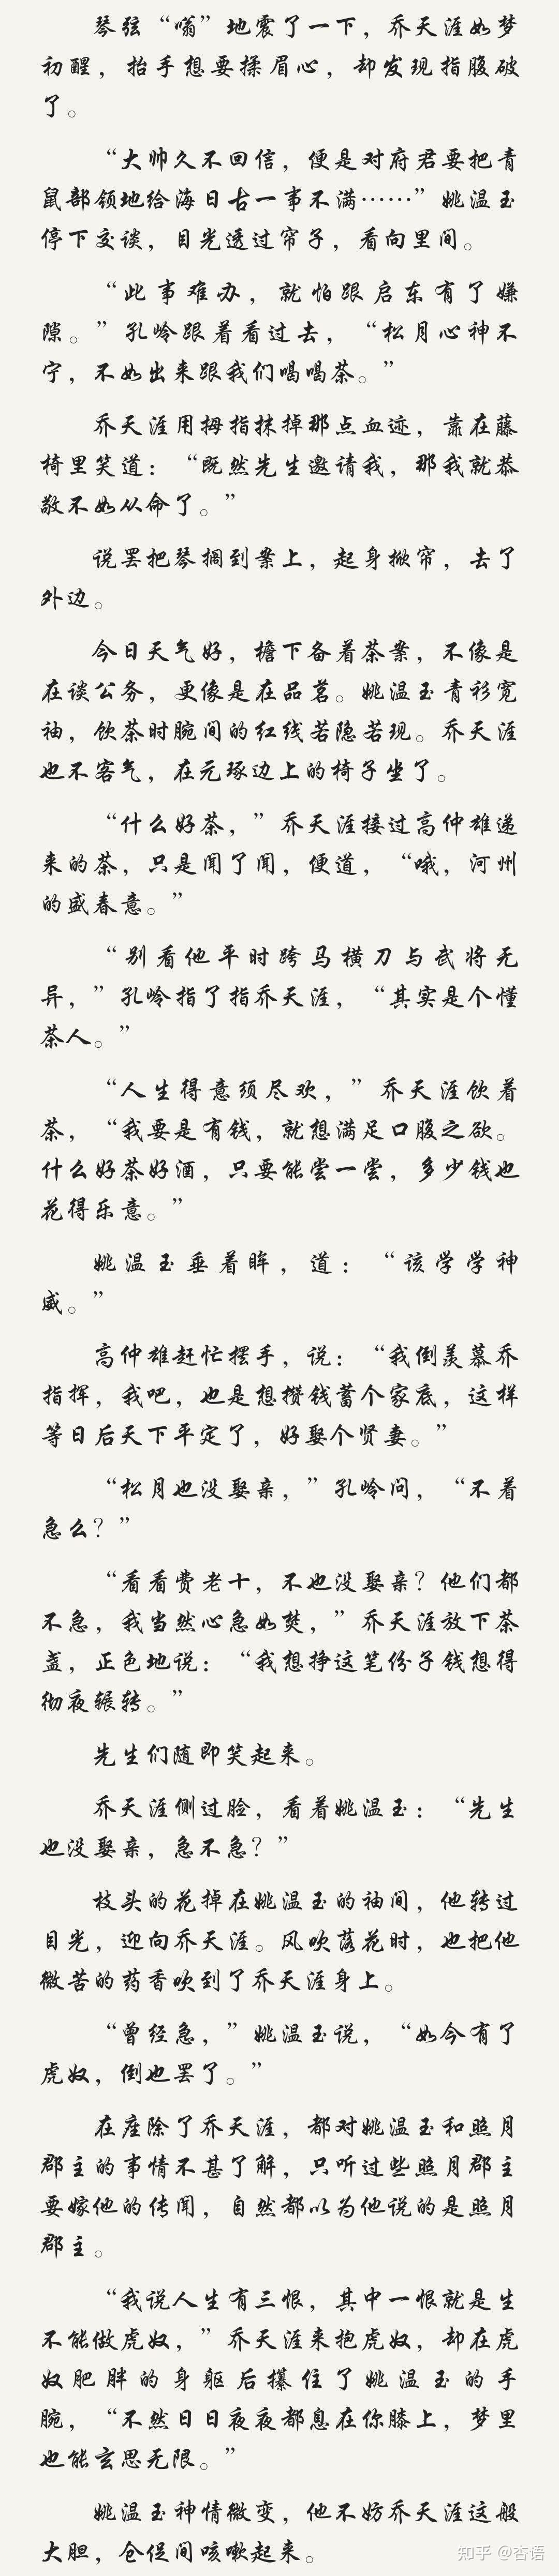 琴弦“嗡”地震了一下，乔天涯如梦
初醒，抬手想要揉眉心，却发现指腹破
了。
“大帅久不回信，便是对府君要把青
鼠部领地给海日古一事不满……”姚温玉
停下交谈，目光透过帘子，看向里间。
“此事难办，就怕跟启东有了嫌
隙。”孔岭跟着看过去，“松月心神不
宁，不如出来跟我们喝喝茶。”
乔天涯用拇指抹掉那点血迹，靠在藤
椅里笑道：“既然先生邀请我，那我就恭
敬不如从命了。”
说罢把琴搁到案上，起身掀帘，去了
外边。
今日天气好，檐下备着茶案，不像是
在谈公务，更像是在品茗。姚温玉青衫宽
袖，饮茶时腕间的红线若隐若现。乔天涯
也不客气，在元琢边上的椅子坐了。
“什么好茶，”乔天涯接过高仲雄递
来的茶，只是闻了闻，便道，“哦，河州
的盛春意。”
“别看他平时跨马横刀与武将无
异，”孔岭指了指乔天涯，“其实是个懂
茶人。”
“人生得意须尽欢，”乔天涯饮着
茶，“我要是有钱，就想满足口腹之欲。
什么好茶好酒，只要能尝一尝，多少钱也
花得乐意。”
姚温玉垂着眸，道：“该学学神
威。”
高仲雄赶忙摆手，说：“我倒羡慕乔
指挥，我吧，也是想攒钱蓄个家底，这样
等日后天下平定了，好娶个贤妻。”
“松月也没娶亲，”孔岭问，“不着
急么？”
“看看费老十，不也没娶亲？他们都
不急，我当然心急如焚，”乔天涯放下茶
盏，正色地说：“我想挣这笔份子钱想得
彻夜辗转。”
先生们随即笑起来。
乔天涯侧过脸，看着姚温玉：“先生
也没娶亲，急不急？”
枝头的花掉在姚温玉的袖间，他转过
目光，迎向乔天涯。风吹落花时，也把他
微苦的药香吹到了乔天涯身上。
“曾经急，”姚温玉说，“如今有了
虎奴，倒也罢了。”
在座除了乔天涯，都对姚温玉和照月
郡主的事情不甚了解，只听过些照月郡主
要嫁他的传闻，自然都以为他说的是照月
郡主。
“我说人生有三恨，其中一恨就是生
不能做虎奴，”乔天涯来抱虎奴，却在虎
奴肥胖的身躯后攥住了姚温玉的手
腕，“不然日日夜夜都息在你膝上，梦里
也能玄思无限。”
姚温玉神情微变，他不妨乔天涯这般
大胆，仓促间咳嗽起来。
知乎 @杏语